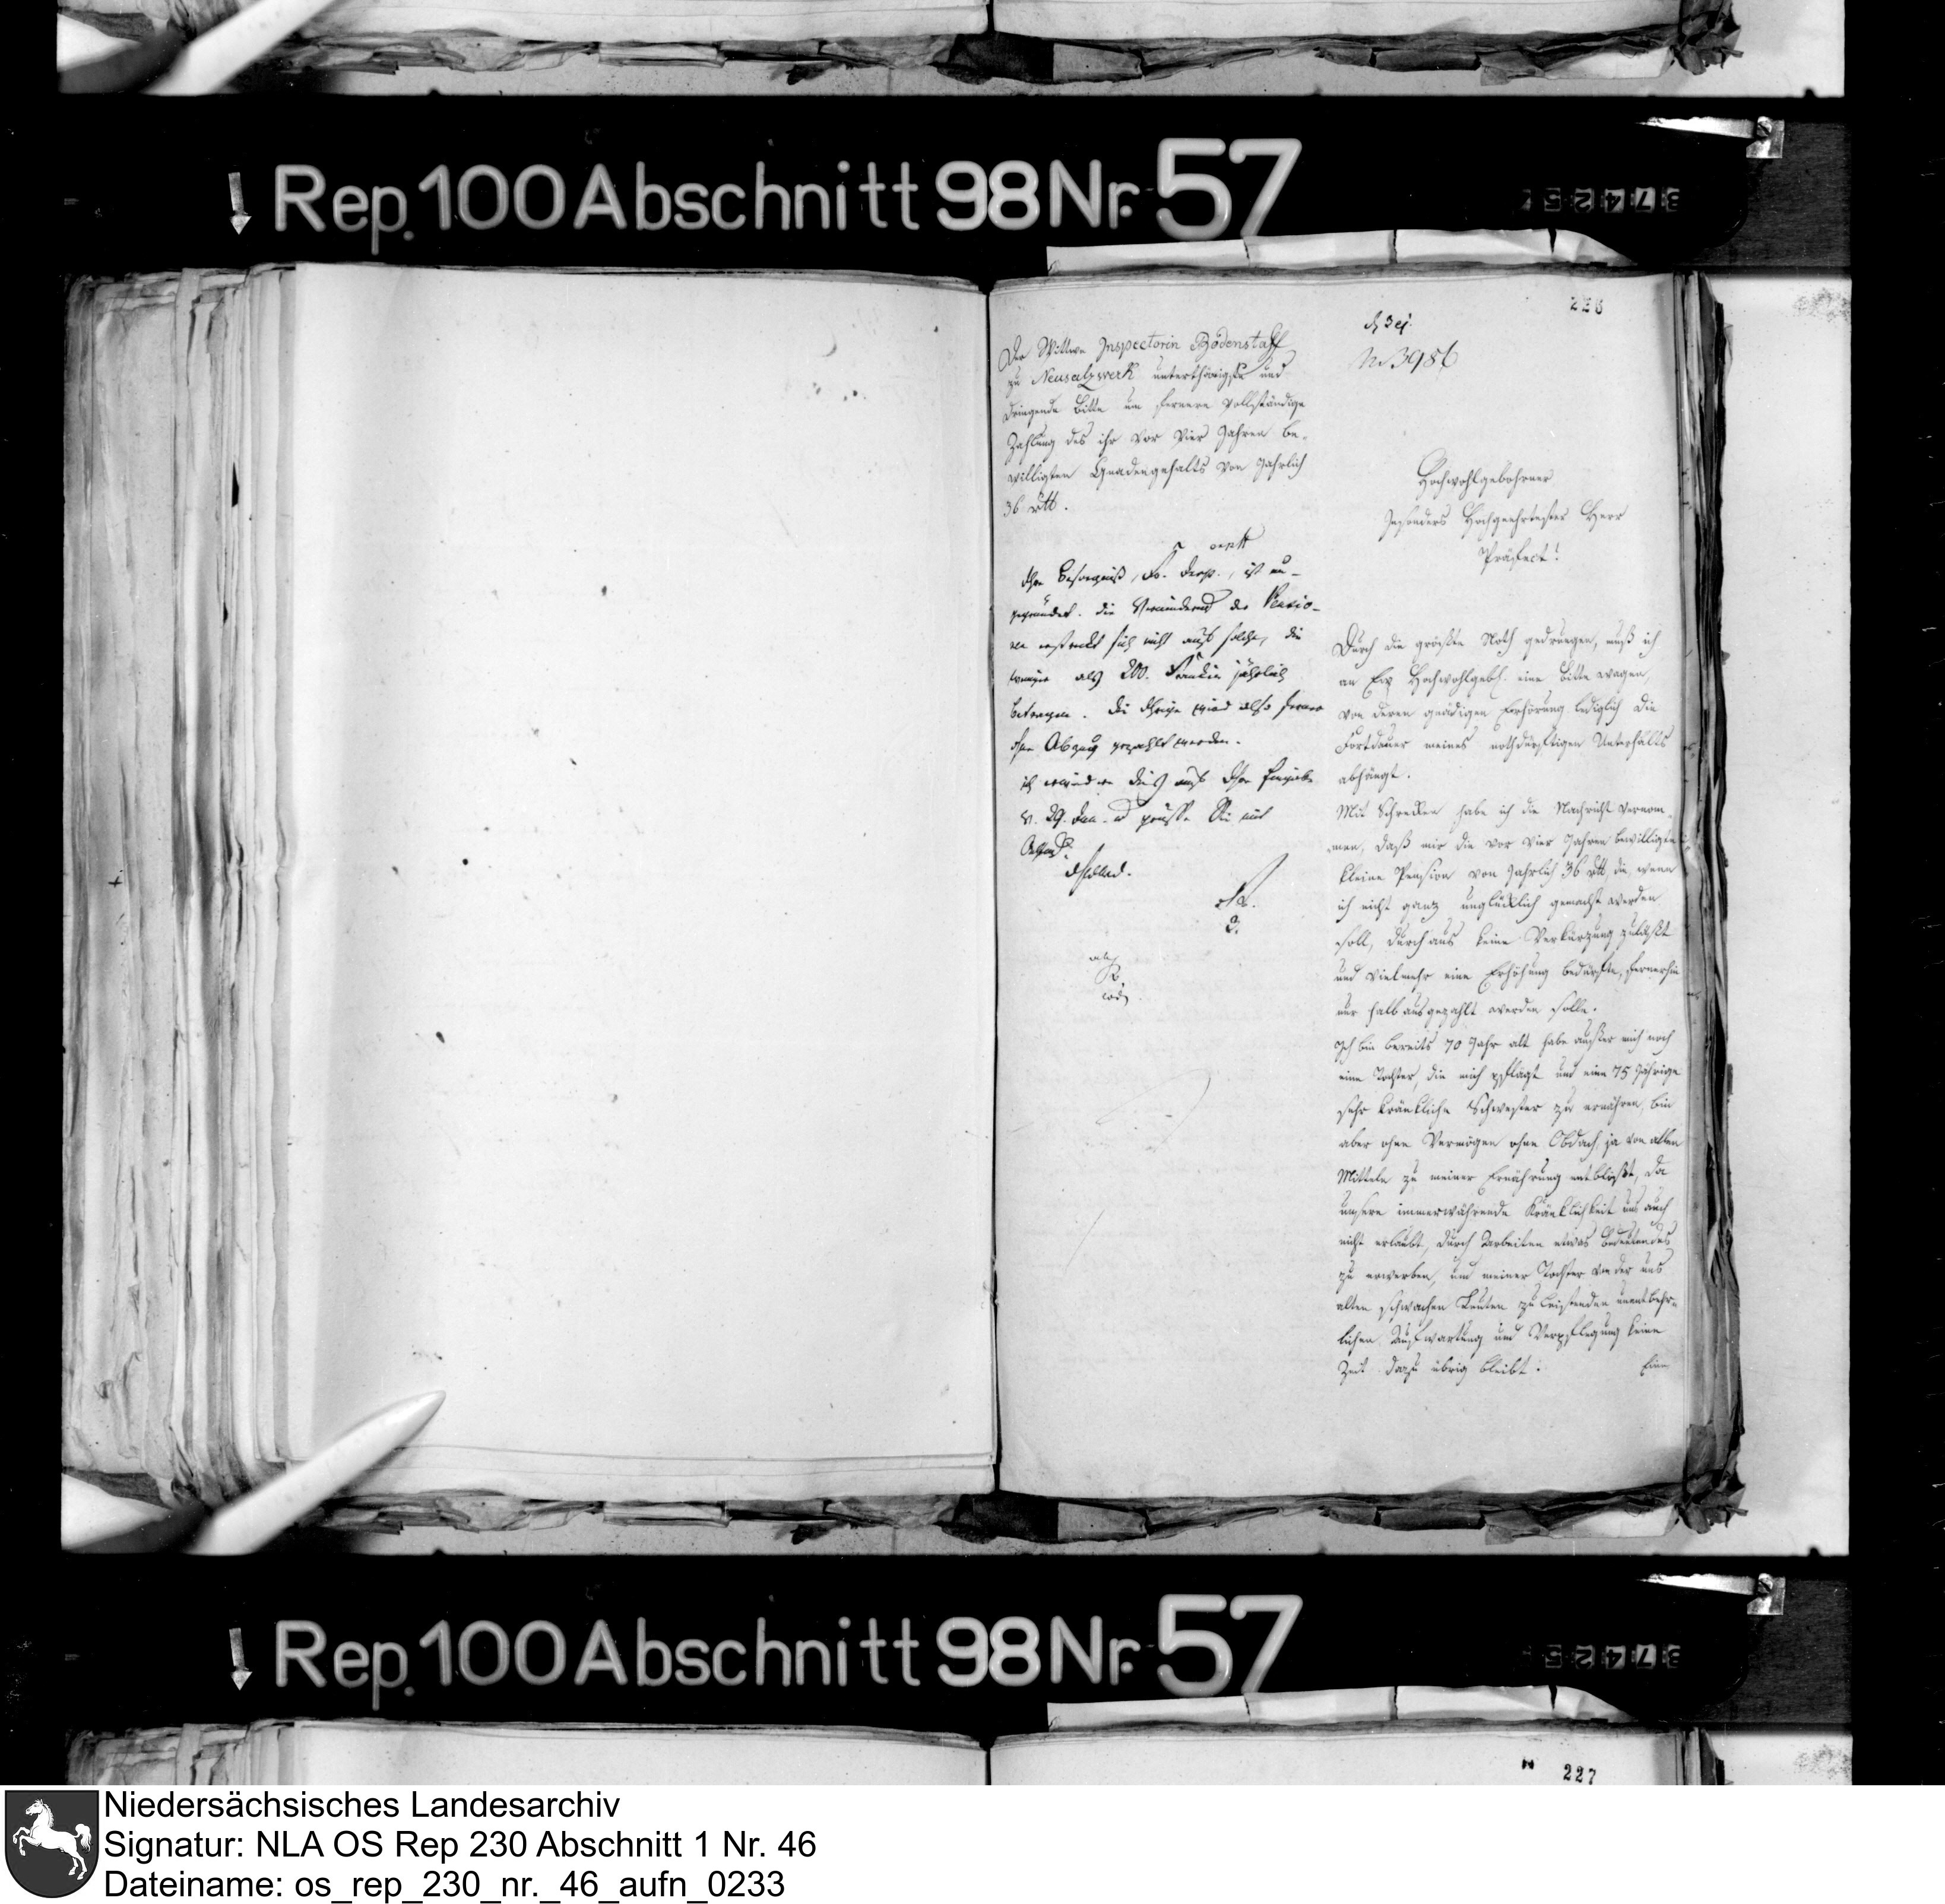 Rep. 100 Abschnitt 98 Nr. 57
3 7 4 2 5
226
No 3986
Der Wittwe Inspectorin Bödenstaff
zu Neusalzwerk unterthänigste und
dringende Bitte um fernere vollständige
Zahlung des ihr vor vier Jahren be-
willigten Gnadengehalts von Jährlich
36 rtt.
Ihre Besorgniß, ist un-
gegründet. die der Pensio-
nen erstreckt sich nicht auf solche, die
weniger als 200. Franken jährlich
betragen. Die Ihrige wird also ferner
ohne Abzug gezahlt werden.
ich erwiedere dieß auf Ihre Eingabe
v. 29. Jan. und grüße Sie mit
Achtung.
Hochwohlgebohrner
Insonders Hochgeehrtester Herr
Präfect!
Durch die größte Noth gedrungen, muß ich
an Ew Hochwohlgeb. eine Bitte wagen,
von deren gnädigen Erhörung lediglich die
Fortdauer meines nothdürftigen Unterhalts
abhängt.
Mit Schrecken habe ich die Nachricht vernom-
men, daß mir die vor vier Jahren bewilligte
kleine Pension von Jährlich 36 rtt die, wenn
ich nicht ganz unglücklich gemacht werden
soll, durchaus keine Verkürzung zuläßt
und vielmehr eine Erhöhung bedürfte, fernerhin
nur halb ausgezahlt werden solle.
Ich bin bereits 70 Jahr alt habe außer mich noch
eine Tochter, die mich pflegt und eine 75 Jährige
sehr kränkliche Schwester zu ernähren, bin
aber ohne Vermögen ohne Obdach, ja von allen
Mitteln zu meiner Ernährung entblößt, da
unsere immerwährende Kränklichkeit uns auch
nicht erlaubt, durch Arbeiten etwas Bedeutendes
zu erwerben, und meiner Tochter von der uns
alten schwachen Leuten zu leistenden unentbehr-
lichen Aufwartung und Verpflegung keine
Zeit dazu übrig bleibt.
Eine
Rep. 100 Abschnitt 98 Nr. 57
3 7 4 2 5
227
Niedersächsisches Landesarchiv
Signatur: NLA OS Rep 230 Abschnitt 1 Nr. 46
Dateiname: os_rep_230_nr._46_aufn_0233